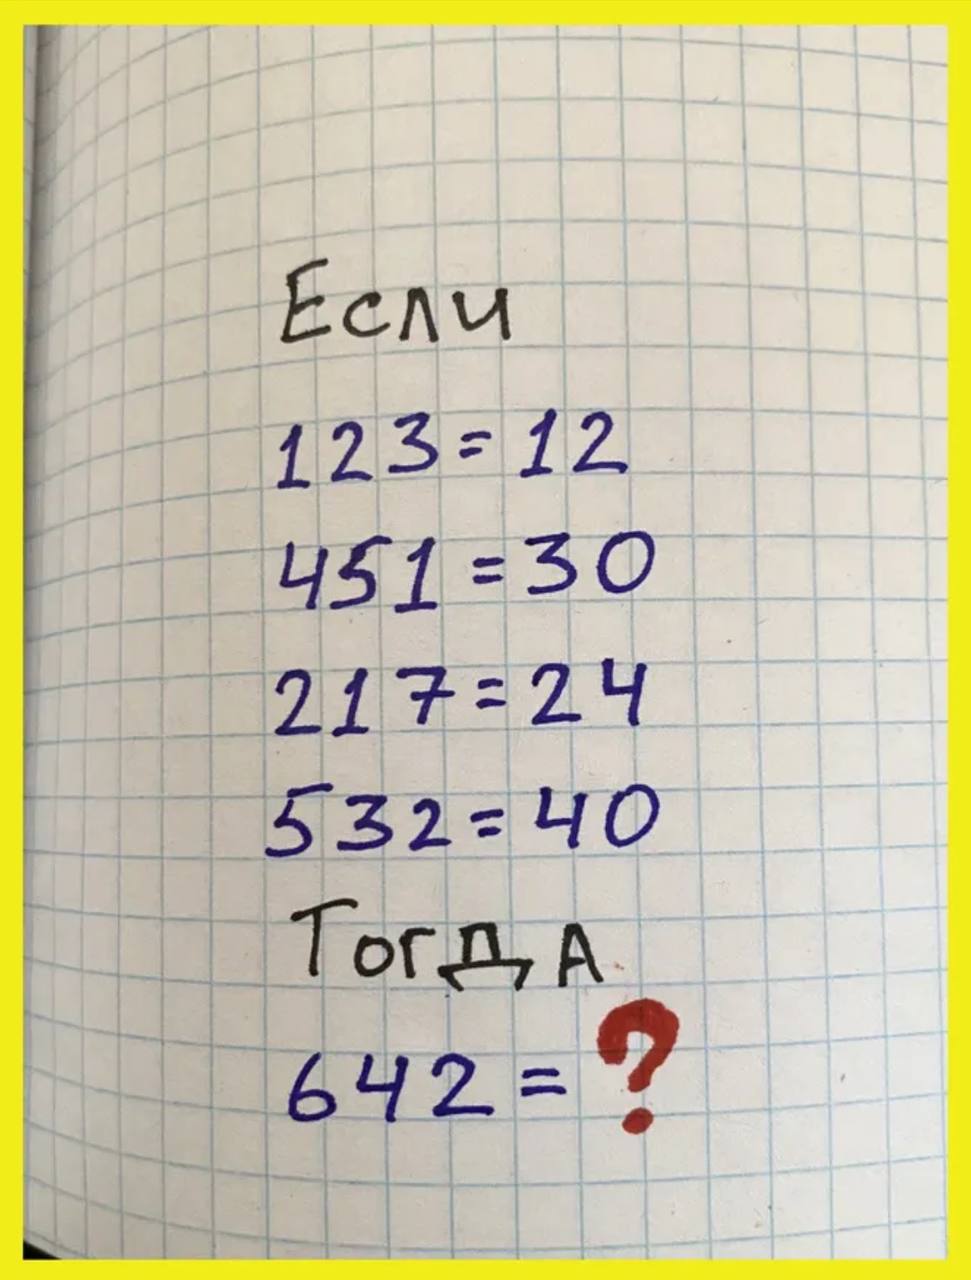 Если
123=12
451=30
217=24
532=40
Тогда
642=?